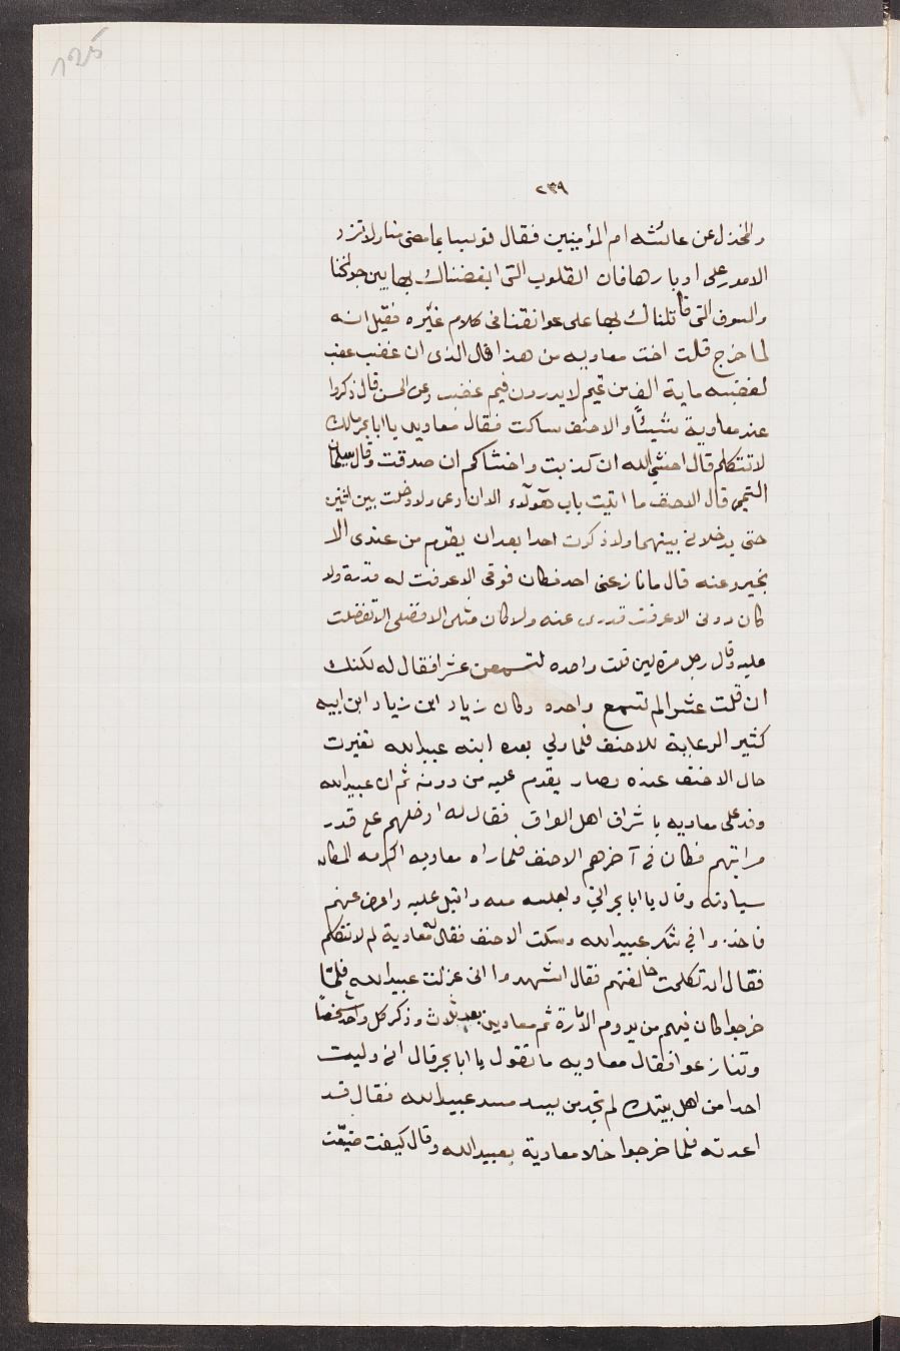 125
٢٣٩
والمخذل عن عائشه ام المؤمنين فقال يا معاوية لا ترد
الامور على ادبارها فان القلوب التى ابغضناك بها بين جوانحنا
والسيوف التى قاتلناك بها على عواتقنا فى كلام غيره فقيل انه
لما خرج قلت اخت معاويه من هذا قال الذى ان غضب غضب
لغضبه ماية الف من تميم لا يدرون فيم غضب وعن الحسن قال ذكروا
عند معاوية شيئًا والاحنف ساكت فقال معاويه يا ابا بحر مالك
لا تتكلم قال اخشى الله ان كذبت واخشاكم ان صدقت وقال سليمان
التيمى قال الاحنف ما اتيت باب هؤلاء الا ان ادعى ولا دخلت بين اثنين
حتى يدخلانى بينهما ولا ذكرت احدا بعد ان يقوم من عندى الا
بخير وعنه قال ما نازعنى احد فكان فوقى الا عرفت له قدره ولا
كان دونى الا عرفت قدرى عنه ولا كان مثلى الا تفضلت
عليه وقال رجل مرة لين قلت واحده لتسمعن عشرا فقال له لكنك
ان قلت عشرا لم تسمع واحده وكان زياد ابن زياد ابن ابيه
كثير الرعاية للاحنف فلما ولي بعده ابنه عبيد الله تغيرت
حال الاحنف عنده وصار يقدم عليه من دونه ثم ان عبيد الله
وفد على معاويه باشراف اهل العراق فقال له ادخلهم على قدر
مراتبهم فكان فى آخرهم الاحنف فلما راه معاويه اكرمه لمكان
سيادته وقال يا ابا بحر الي واجلسه معه واقبل عليه واعرض عنهم
فاخذوا في شكر عبيد الله وسكت الاحنف فقال له معاوية لم لا تتكلم
فقال ان تكلمت خالفتهم فقال اشهدوا انى عزلت عبيد الله فلمّا
خرجوا كان فيهم من يروم الامارة ثم معاويه بعد ثلاث وذكر كل واحد شخصاً
وتنازعوا فقال معاويه ما تقول يا ابا بحر قال ان وليت
احدا من اهل بيتك لم تجد من يسد مسد عبيد الله فقال قد
اعدته فلما خرجوا خلا معاوية بعبيد الله وقال كيف ضيّعت